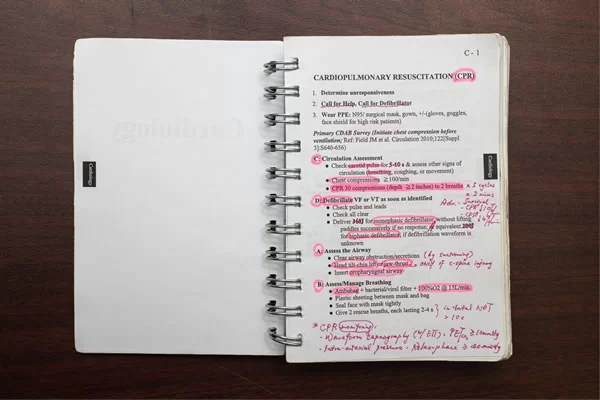 C - 1
CARDIOPULMONARY RESUSCITATION (CPR)
1. Determine unresponsiveness
2. Call for Help, Call for Defibrillator
3. Wear PPE: N95/ surgical mask, gown, +/-(gloves, goggles,
face shield for high risk patients)
Primary CDAB Survey (Initiate chest compression before
ventilation; Ref: Field JM et al. Circulation 2010;122[Suppl
3]:S640-656)
C: Circulation Assessment
• Check carotid pulse for 5-10 s & assess other signs
of circulation (breathing, coughing, or movement)
• Chest compressions ≥100/min
• CPR 30 compressions (depth ≥2 inches) to 2 breaths
x 5 cycles
D: Defibrillate VF or VT as soon as identified
• Check pulse and leads
• Check all clear
• Deliver 360J for monophasic defibrillator, without lifting
paddles successively if no response, equivalent 200J
for biphasic defibrillator, if defibrillation waveform is
unknown
A: Assess the Airway
• Clear airway obstruction/secretions (by suctioning)
• Head tilt-chin lift jaw-thrust
• Insert oropharyngeal airway
B: Assess/Manage Breathing
• Ambubag + bacterial/viral filter + 100%O2 @ 15L/min.
• Plastic sheeting between mask and bag
• Seal face with mask tightly
• Give 2 rescue breaths, each lasting 2-4 s } in total NOT
> 10s
* CPR monitoring:
- Waveform capnography
- Intra-arterial pressure - Relax-phase
Cardiology
Cardiology
Cardiology